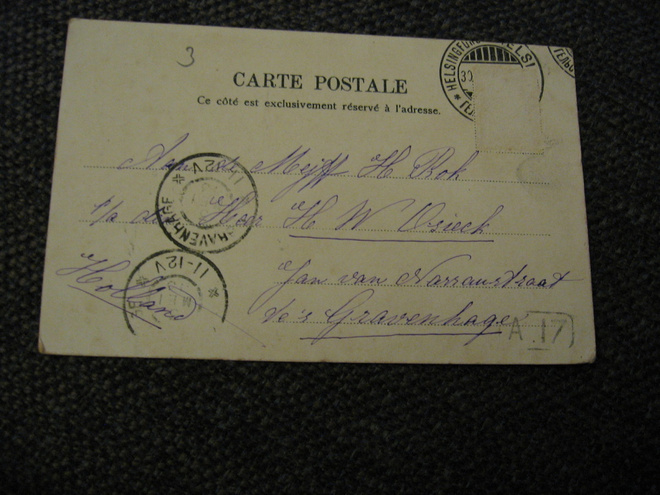 3
CARTE POSTALE
Ce côté est exclusivement réservé à l'adresse.
HELSINGFORS HELSI
30
Aan H Bok
p/a de Heer H W Osieck
Jan van Nassaustraat
te 's Gravenhage
Holland
GRAVENHAGE
11-12V
11-12V
A 17